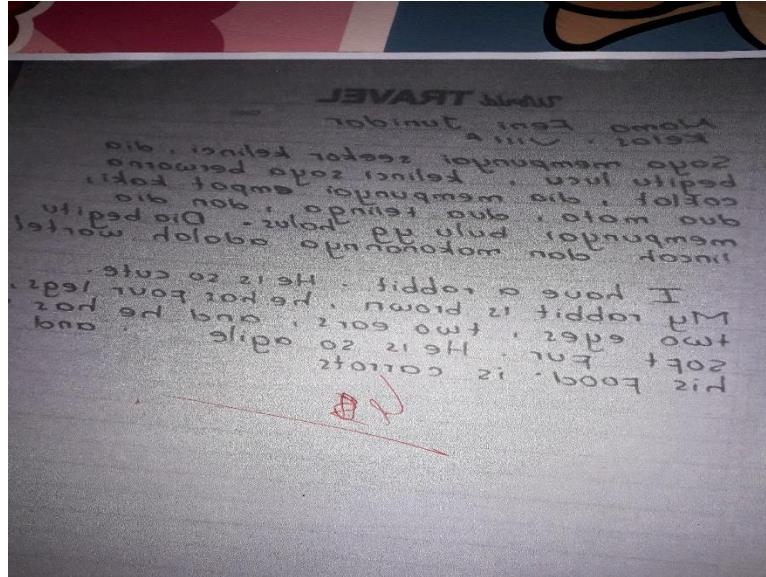 World TRAVEL
Nama Feni Junidar
Kelas . VIII A
Saya mempunyai seekor kelinci, dia
begitu lucu. kelinci saya berwarna
coklat, dia mempunyai empat kaki,
dua mata, dua telinga, dan dia
mempunyai bulu yg halus. Dia begitu
lincah dan makanannya adalah wortel
I have a rabbit. He is so cute.
My rabbit is brown, he has four legs,
two eyes, two ears, and he has
soft fur. He is so agile, and
his food. is carrots